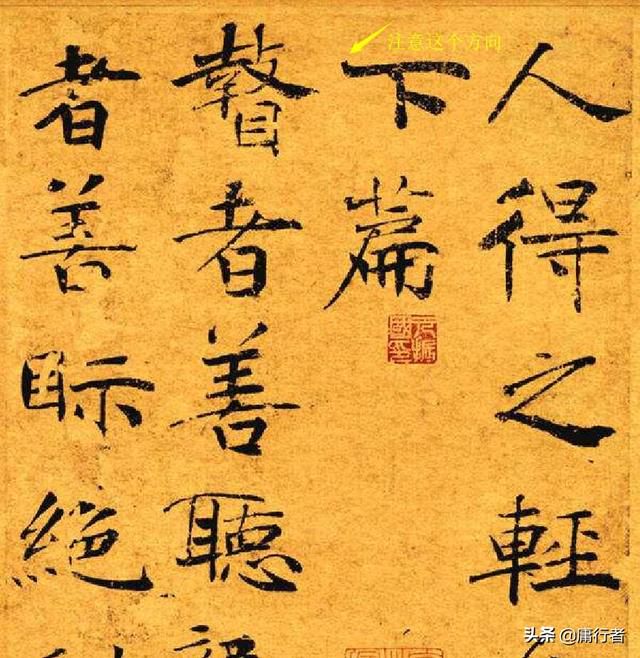 注意这个方向
人得之輕
下篇
瞽者善聽
者善眎絕
头条 @庸行者